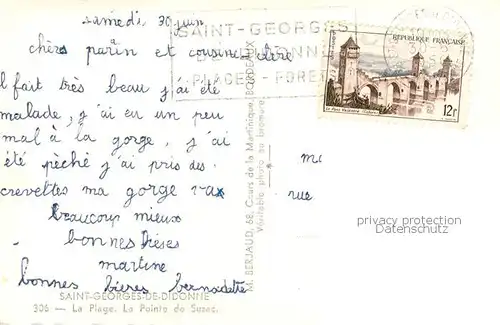 samedi 30 juin
chers parin et cousine chère
il fait très beau j'ai été
malade, j'ai eu un peu
mal à la gorge, j'ai
été pêché j'ai pris des
crevettes ma gorge vax
beaucoup mieux
bonnes bièses
martine
bonnes bièses bernadette
SAINT-GEORGES-DE-DIDONNE
306 — La Plage. La Pointe de Suzac.
M. BERJAUD, 68, Cours de la Martinique, BORDEAUX
Véritable photo au bromure
SAINT-GEORGES
DE DIDONNE
PLAGE - FORET
RÉPUBLIQUE FRANÇAISE
12f
Le Pont Valentré (Cahors)
rue
privacy protection
Datenschutz